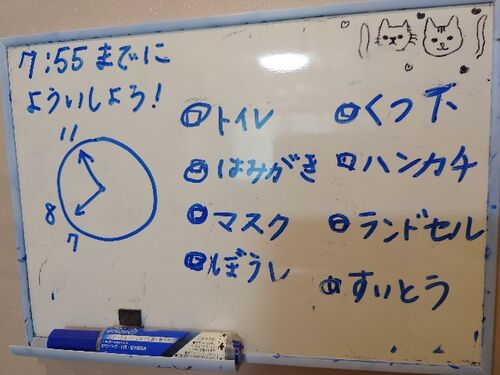 7:55までに
よういしよう!
11
8
7
トイレ
はみがき
マスク
ぼうし
くつ下
ハンカチ
ランドセル
すいとう